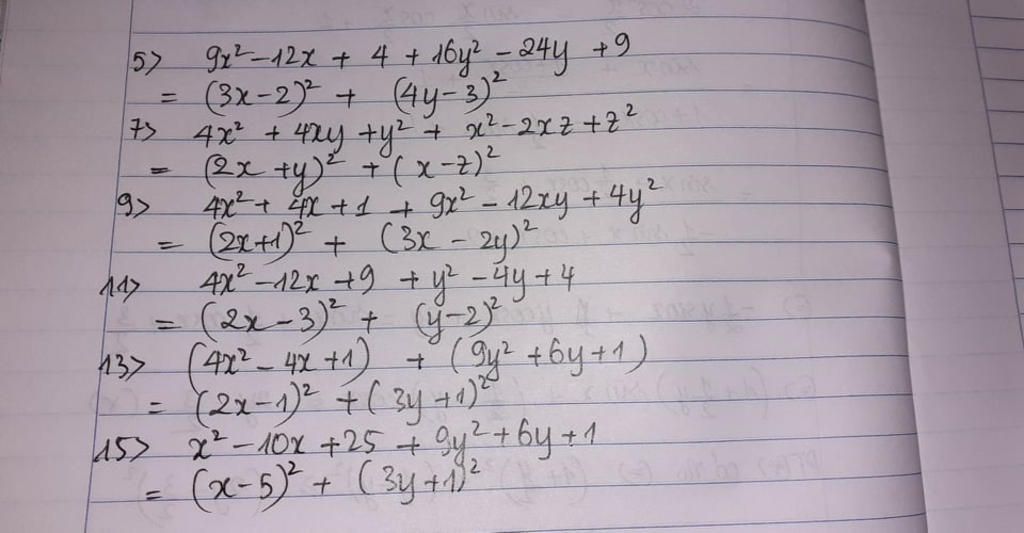 5> 9x² - 12x + 4 + 16y² - 24y + 9
= (3x - 2)² + (4y - 3)²
7> 4x² + 4xy + y² + x² - 2xz + z²
= (2x + y)² + (x - z)²
9> 4x² + 4x + 1 + 9x² - 12xy + 4y²
= (2x+1)² + (3x - 2y)²
11> 4x² - 12x + 9 + y² - 4y + 4
= (2x - 3)² + (y - 2)²
13> (4x² - 4x + 1) + (9y² + 6y + 1)
= (2x - 1)² + (3y + 1)²
15> x² - 10x + 25 + 9y² + 6y + 1
= (x - 5)² + (3y + 1)²